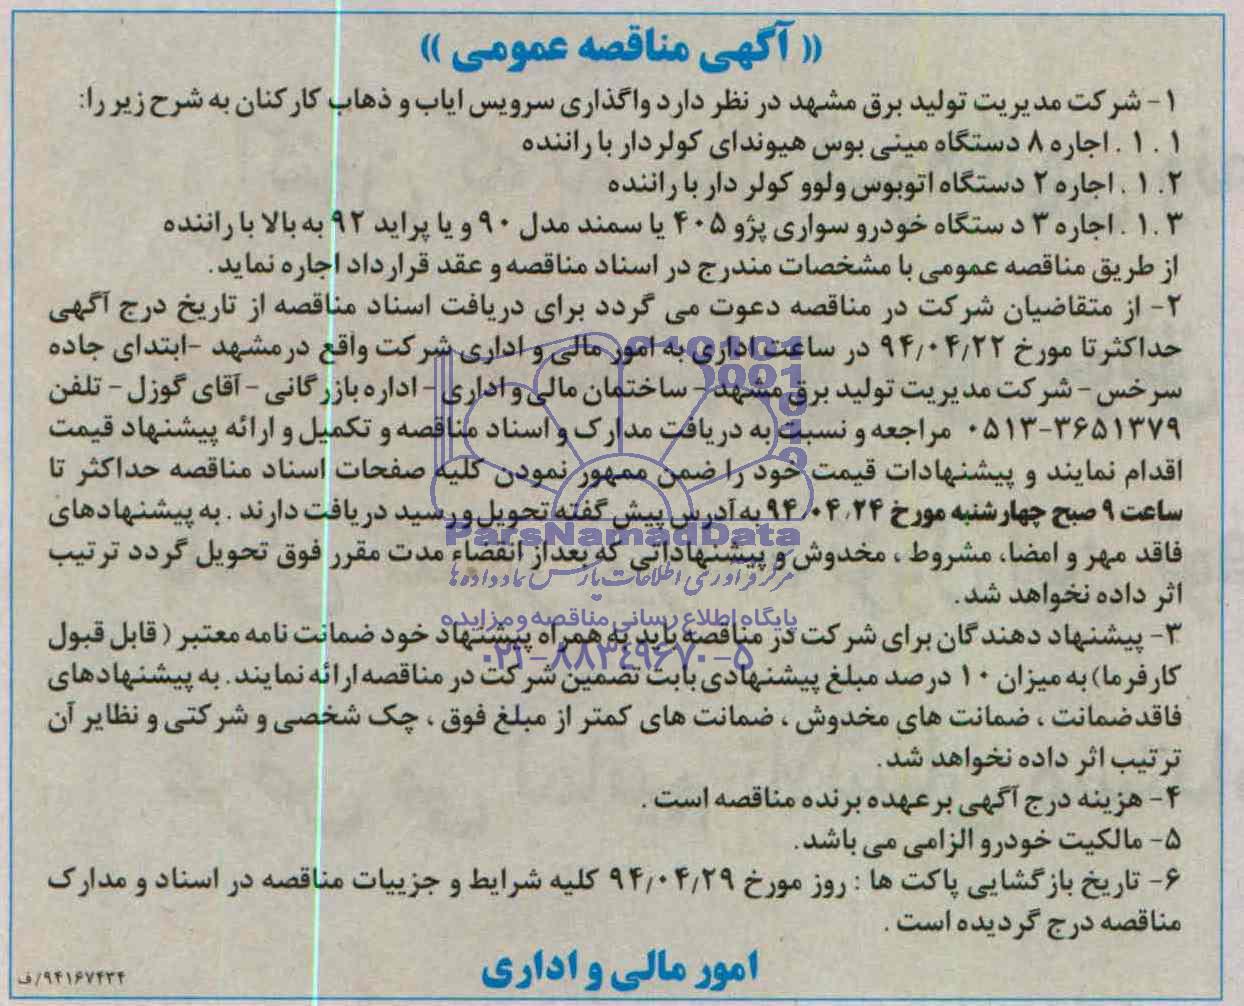 (( آگهی مناقصه عمومی ))
۱- شرکت مدیریت تولید برق مشهد در نظر دارد واگذاری سرویس ایاب و ذهاب کارکنان به شرح زیر را:
۱ . ۱ . اجاره ۸ دستگاه مینی بوس هیوندای کولردار با راننده
۱.۲ . اجاره ۲ دستگاه اتوبوس ولوو کولر دار با راننده
۱.۳ . اجاره ۳ د ستگاه خودرو سواری پژو ۴۰۵ یا سمند مدل ۹۰ و یا پراید ۹۲ به بالا با راننده
از طریق مناقصه عمومی با مشخصات مندرج در اسناد مناقصه و عقد قرارداد اجاره نماید.
۲- از متقاضیان شرکت در مناقصه دعوت می گردد برای دریافت اسناد مناقصه از تاریخ درج آگهی
حداکثرتا مورخ ۹۴٫۰۴٫۲۲ در ساعت اداری به امور مالی و اداری شرکت واقع درمشهد -ابتدای جاده
سرخس- شرکت مدیریت تولید برق مشهد- ساختمان مالی و اداری- اداره بازرگانی- آقای گوزل- تلفن
۰۵۱۳-۳۶۵۱۳۷۹ مراجعه و نسبت به دریافت مدارک و اسناد مناقصه و تکمیل و ارائه پیشنهاد قیمت
اقدام نمایند و پیشنهادات قیمت خود را ضمن ممهور نمودن کلیه صفحات اسناد مناقصه حداکثر تا
ساعت ۹ صبح چهارشنبه مورخ ۹۴٫۰۴٫۲۴ به آدرس پیش گفته تحویل و رسید دریافت دارند . به پیشنهادهای
فاقد مهر و امضا، مشروط ، مخدوش و پیشنهاداتی که بعداز انقضاء مدت مقرر فوق تحویل گردد ترتیب
اثر داده نخواهد شد.
۳- پیشنهاد دهندگان برای شرکت در مناقصه باید به همراه پیشنهاد خود ضمانت نامه معتبر ( قابل قبول
کارفرما) به میزان ۱۰ درصد مبلغ پیشنهادی بابت تضمین شرکت در مناقصه ارائه نمایند. به پیشنهادهای
فاقدضمانت ، ضمانت های مخدوش ، ضمانت های کمتر از مبلغ فوق ، چک شخصی و شرکتی و نظایر آن
ترتیب اثر داده نخواهد شد.
۴- هزینه درج آگهی برعهده برنده مناقصه است .
۵- مالکیت خودرو الزامی می باشد.
۶- تاریخ بازگشایی پاکت ها : روز مورخ ۹۴٫۰۴٫۲۹ کلیه شرایط و جزییات مناقصه در اسناد و مدارک
مناقصه درج گردیده است .
امور مالی و اداری
۹۴۱۶۷۴۳۴/ف
ParsNamadData
مرکز فرآوری اطلاعات پارس نماد داده ها
پایگاه اطلاع رسانی مناقصه و مزایده
۰۲۱-۸۸۳۴۹۶۷۰-۵